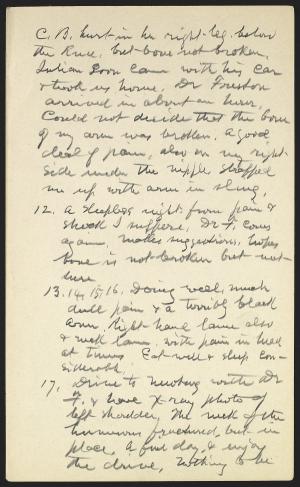 C. B. hurt in her right leg below
the Knee, but bone not broken.
Julian Soon came with his car
& took us home. Dr Freston
arrived in about an hour,
Could not decide that the bone
of my arm was broken. A good
deal of pain, also on my right
side under the nipple. Strapped
me up, with arm in sling.
12. A sleepless night from pain &
shock I suppose, Dr F. comes
again, makes suggestions, hopes
bone is not broken but not
sure
13. 14, 15, 16. Doing well, much
dull pain & a terribly black
arm. Right hand lame also
& neck lame, with pain in head
at times. Eat well & sleep con-
siderable.
17. Drive to Newburg with Dr
F. & have X-ray photo of
left shoulder, The neck of the
humerus fractured, but in
place. A fine day, & enjoy
the drive, Nothing to be